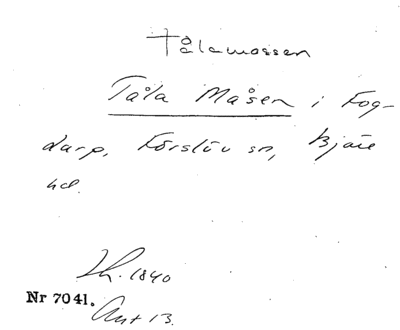 Tålamossen
Tåla Måsen i Fog-
darp, Förslöv sn, Bjäre
hd.
Lh. 1840
Nr 7041.
Ant 13.